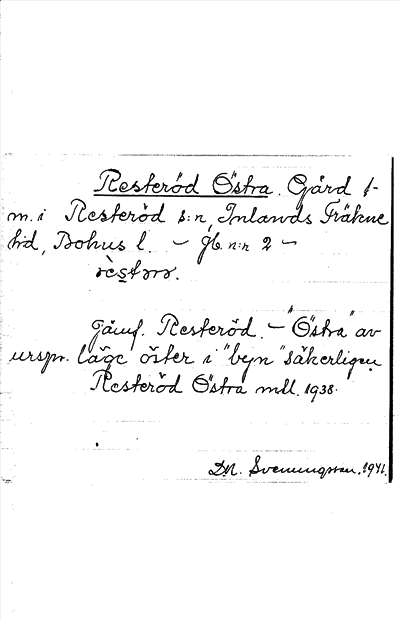 Resteröd Östra. Gård f-
m. i Resteröd s:n, Inlands Fräkne
hd, Bohus l. – Jb. n:r 2 –
Jämf. Resteröd. – "Östra" av
urspr. läge öster i "byn" säkerligen
Resteröd Östra mtl. 1938.
D.N. Svenungsson. 1941.